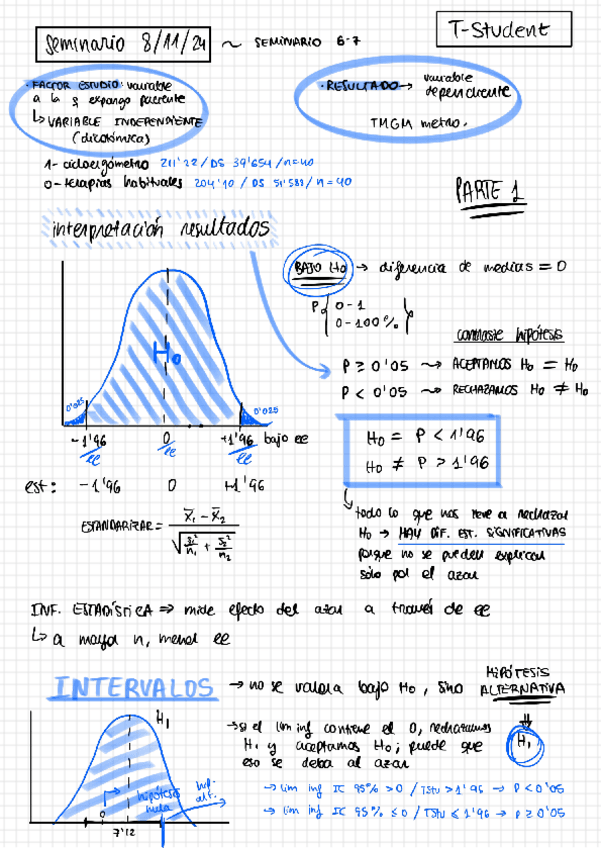 Seminario 8/11/24 ~ SEMINARIO 6-7
T-Student
· FACTOR ESTUDIO: variable
a la q expongo paciente
↳ VARIABLE INDEPENDIENTE
(dicotómica)
· RESULTADO → variable
dependiente
TMGM metro.
1- cicloergómetro 211'22 / DS 39'654 / n=40
0- terapias habituales 204'10 / DS 51'583 / n=40
PARTE 1
interpretación resultados
BAJO H0 → diferencia de medias = 0
P 0-1
0-100%
contraste hipótesis
P ≥ 0'05 ⇝ ACEPTAMOS H0 = H0
P < 0'05 ⇝ RECHAZAMOS H0 ≠ H0
H0
0'025 0'025
-1'96 0 +1'96 bajo ee
ee ee ee
H0 = P < 1'96
H0 ≠ P > 1'96
est: -1'96 0 +1'96
ESTANDARIZAR = (x̄1 - x̄2) / √(s1²/n1 + s2²/n2)
↳ todo lo que nos lleve a rechazar
H0 → HAY DIF. EST. SIGNIFICATIVAS
porque no se pueden explicar
sólo por el azar
INF. ESTADÍSTICA ⇒ mide efecto del azar a través de ee
↳ a mayor n, menor ee
INTERVALOS → no se valora bajo H0, sino HIPÓTESIS ALTERNATIVA
H1
→ si el lim inf contiene el 0, rechazamos
H1 y aceptamos H0; puede que
eso se deba al azar
→ lim inf IC 95% > 0 / TStu > 1'96 → p < 0'05
→ lim inf IC 95% ≤ 0 / TStu ≤ 1'96 → p ≥ 0'05
H1
hipótesis
nula
hip.
alt.
0
7'12